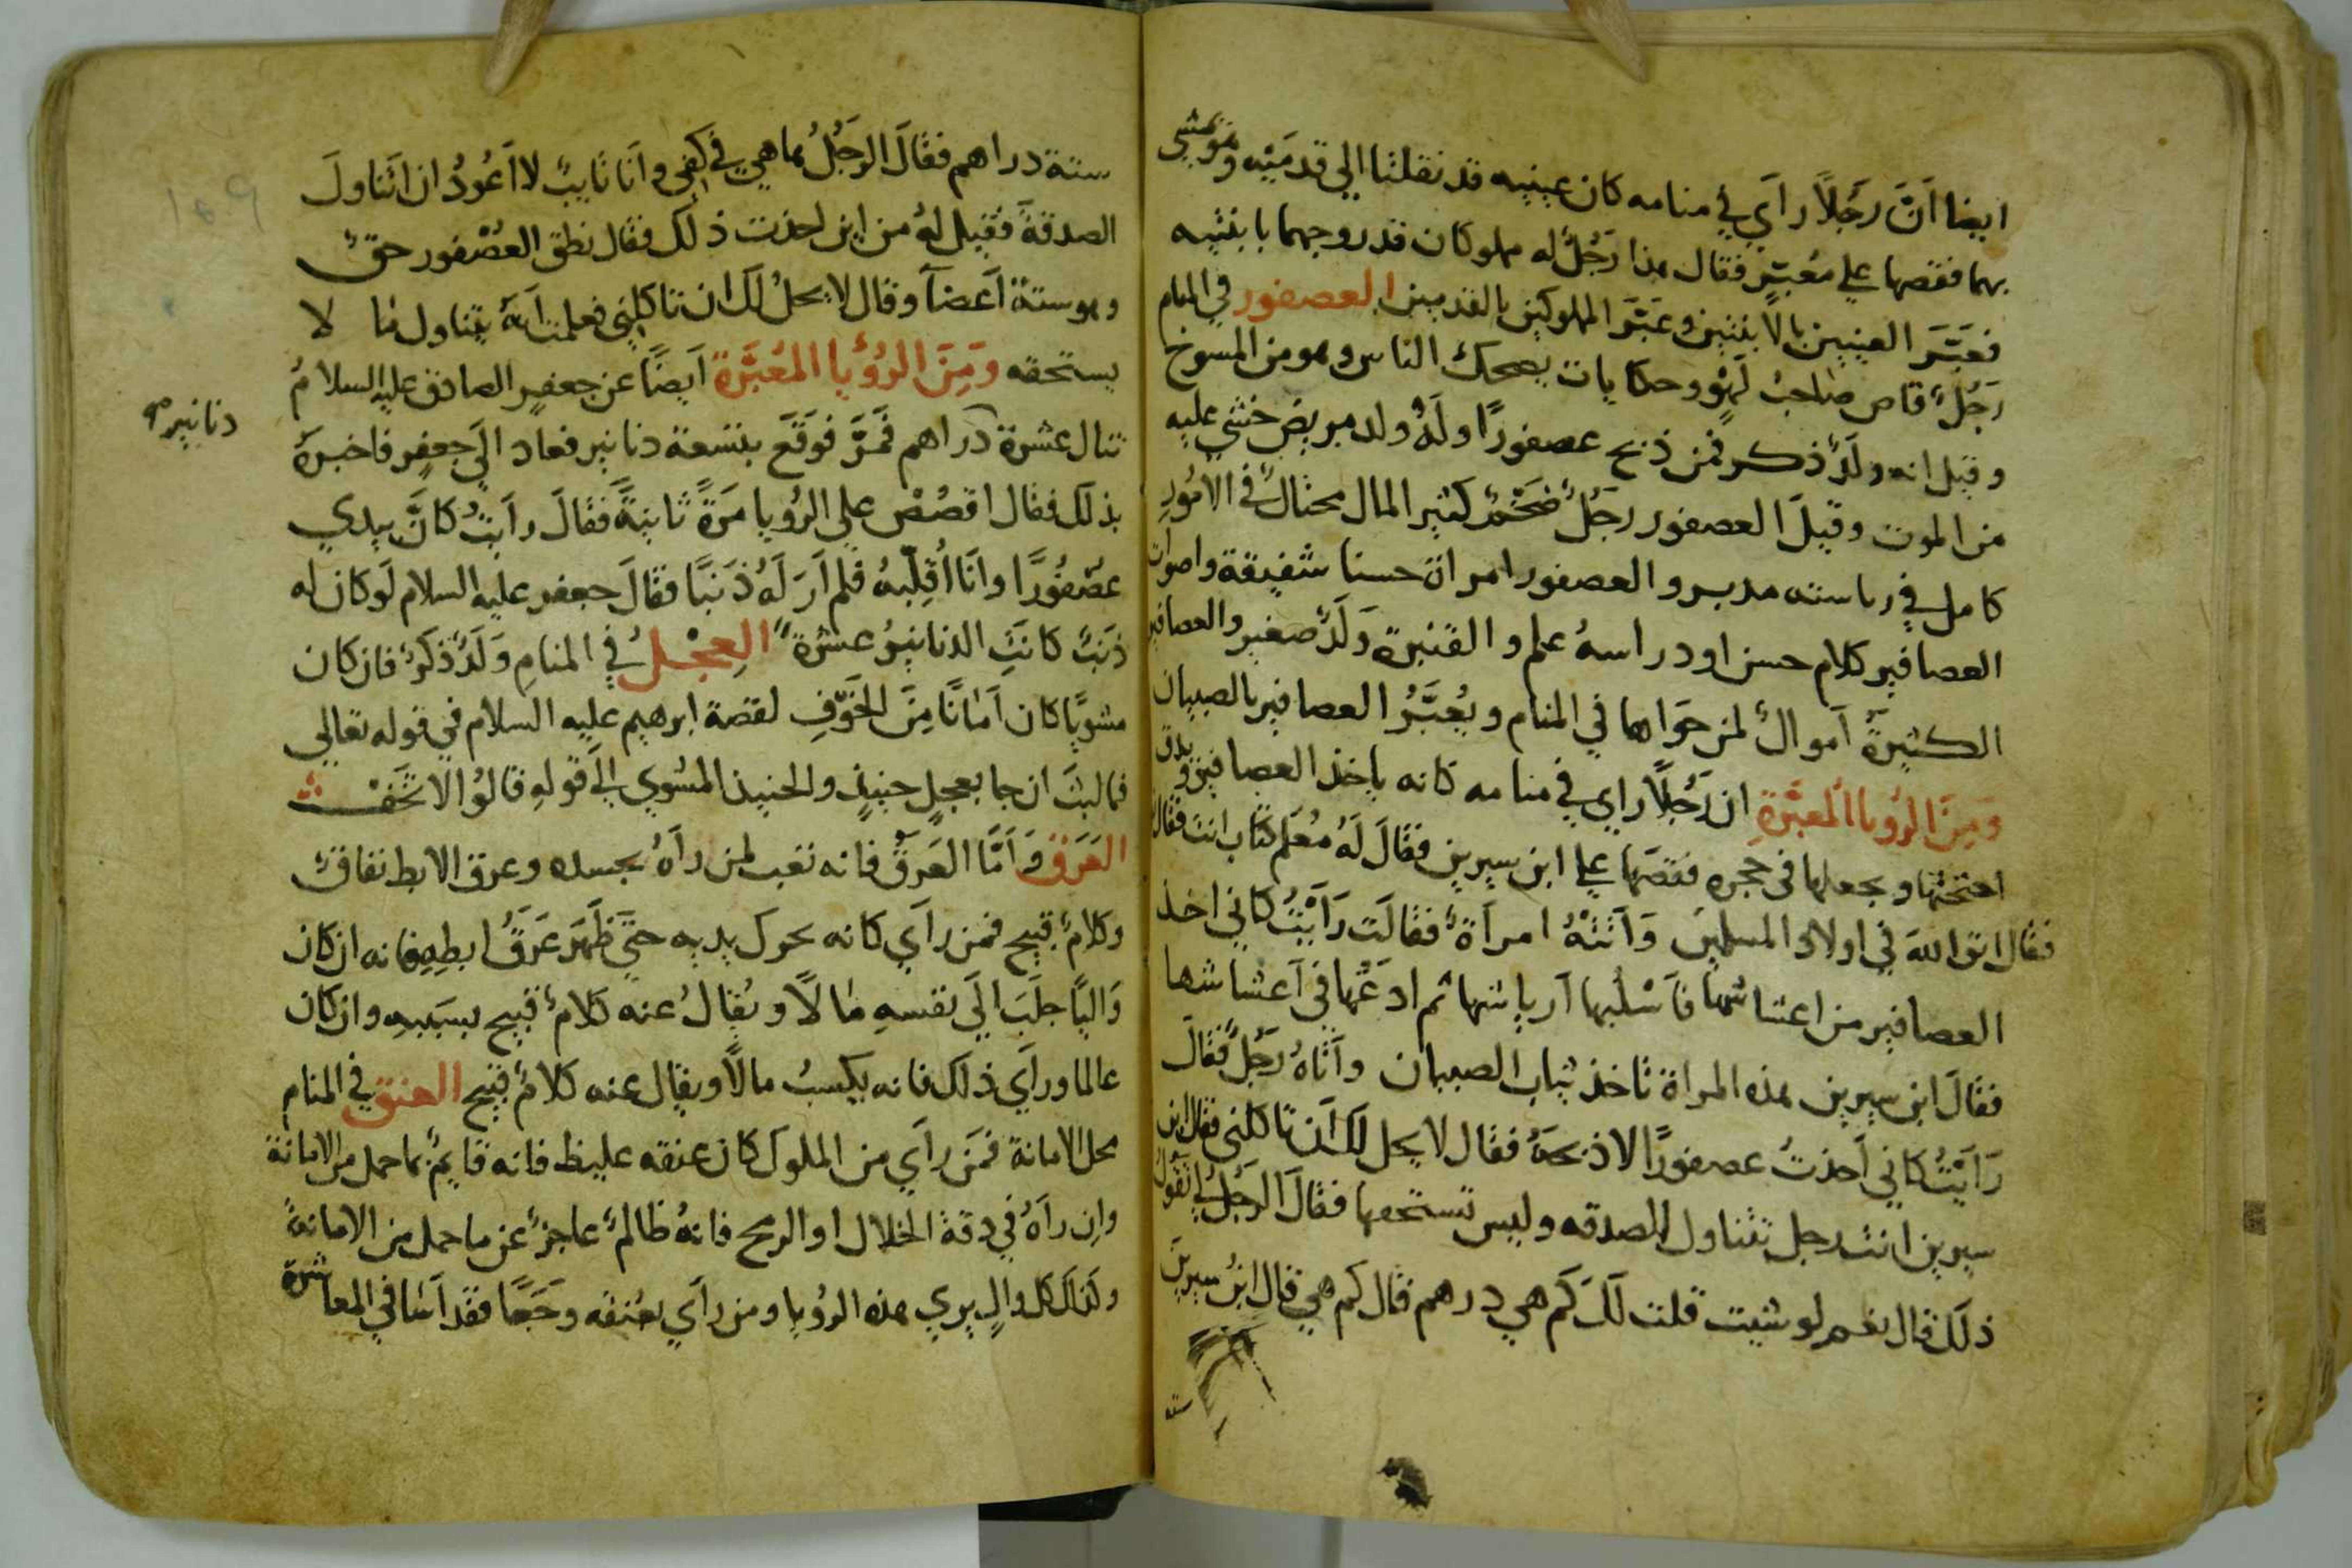 ايضا اَنَّ رَجُلاً رايَ في منامه كان عينيه قد نقلتا الي قدميْه وهو يمشي
بهما فقصها علي مُعبّر فقال هذا رَجُلٌ له مملوكان قد زوجهما بابنتيه
فعَبَّرَ العينين بالابنتين وعَبَّرَ المملوكين بالقدمين العصفور في المنام
رَجُلٌ قاص صاحبُ لَهْوٍ وحكايات يضحك الناس وهو من المسوخ
وقيل انه ولَدٌ ذكر فمن ذبح عصفورًا ولَهُ ولد مريض خشي عليه
من الموت وقيلَ العصفور رجَلٌ ضَخْمٌ كثير المال محتالٌ في الامُورِ
كامل في رياسته مدبر والعصفور امراة حسنا شفيقة واصوات
العصافير كلام حسن او دراسةُ علم والقنبرة وَلَدٌ صغير والعصافير
الكثيرةُ اَموالٌ لمن حَواها في المنام ويُعَبَّرُ العصافير بالصبيان
وَمِنَ الرُويا المُعَبَّرةِ ان رَجُلاً راي في منامه كانه ياخذ العصافير ويدق
اجنحتها ويجعلها في حجره فقصّها علي ابن سيرين فقالَ لَهُ مُعَلم كتّاب انت فقال
فقال اتق اللهَ في اولاد المسلمين وَاَتَتْهُ امراَةٌ فقالَت رَاَيْتُ كاني اخذ
العصافير من اعشاشها فاَسْلُبها اَرياشها ثم ادَعُها في اَعشاشها
فقالَ ابن سيرين هذه المراة تاخذ ثياب الصبيان واَتاهُ رَجُلٌ فقالَ
رَاَيْتُ كاني اَخذتُ عصفورًا لاذبحَهُ فقال لا يحل لَكَ اَن تاكلني فقال ابن
سيرين انت رجل تتناول الصدقه وليس تستحقها فقالَ الرجُلُ لي تَقولُ
ذلكَ قال نعم لو شيت قلت لَكَ كم هي درهم قال كم هي قال ابنُ سيرينَ
ستة
ستة دراهم فقالَ الرجُلُ ها هي في كفي واَنا تايبٌ لا اَعُودُ ان اتَناولَ
الصدقةَ فقيل لهُ من اين اخذت ذلك فقال نطق العصْفور حقٌ
وهو ستة اَعضآ وقال لا يحلُ لَكَ ان تاكلني فعلمت اَنهُ يتناول ما لا
يستحقه وَمِنَ الرُؤيا المُعَبَّرة اَيضًا عن جعفرٍ الصادق عليه السلامُ
تنال عشرة دراهم فَمَرَّ فوَقَعَ بتسعة دنانير فعاد الَي جعفرٍ فاخبرهُ
دنانير صح
بذلكَ فقال اقصُصْ علي الرُويا مَرَةً ثانيةً فقالَ راَيتُ كانَّ بيدي
عصْفُورًا وانَا اُقلِّبهُ فلم اَرَ لَهُ ذَنَبًا فقالَ جعفر عليه السلام لَو كان له
ذنَبٌ كانَتِ الدنانيرُ عشرة العِجْلُ في المنامِ وَلَدٌ ذكَرٌ فان كان
مشويًا كان اَمانًا مِنَ الخَوفِ لقصة ابرهيم عليه السلام في قوله تعالي
فما لبثَ ان جا بعجلٍ حنيذٍ والحنيذ المشوي الَي قولهِ قالوُا لا تَخَفْ
العَرَق وَاَمَّا العَرقُ فانه تعب لمن راَهُ بجسده وعرق الابط نفاقٌ
وكلامٌ قبيح فمن راَي كانه يحرك يديه حتَي ظَهَرَ عَرَقُ ابطِهِ فانه ان كان
وَاليًا جلَبَ الَي نفسهِ مالاً ويُقالُ عنه كلامٌ قبيح بسَببهِ وان كان
عالما وراَي ذلكَ فانه يكسبُ مالاً ويقال عنه كلامٌ قبيح العنق في المنام
محل الامانة فمَن راَي من الملوك كان عنقه غليظ فانه قايمٌ بما حمل من الامانة
وان راَهُ في دقة الخلال او الرمح فانهُ ظالمٌ عاجزٌ عن ما حمل من الامانة
وكذلكَ كل والٍ يري هذه الرؤيا ومن راَي بعُنقه وجَعًا فقد اَسا في المعاشرة